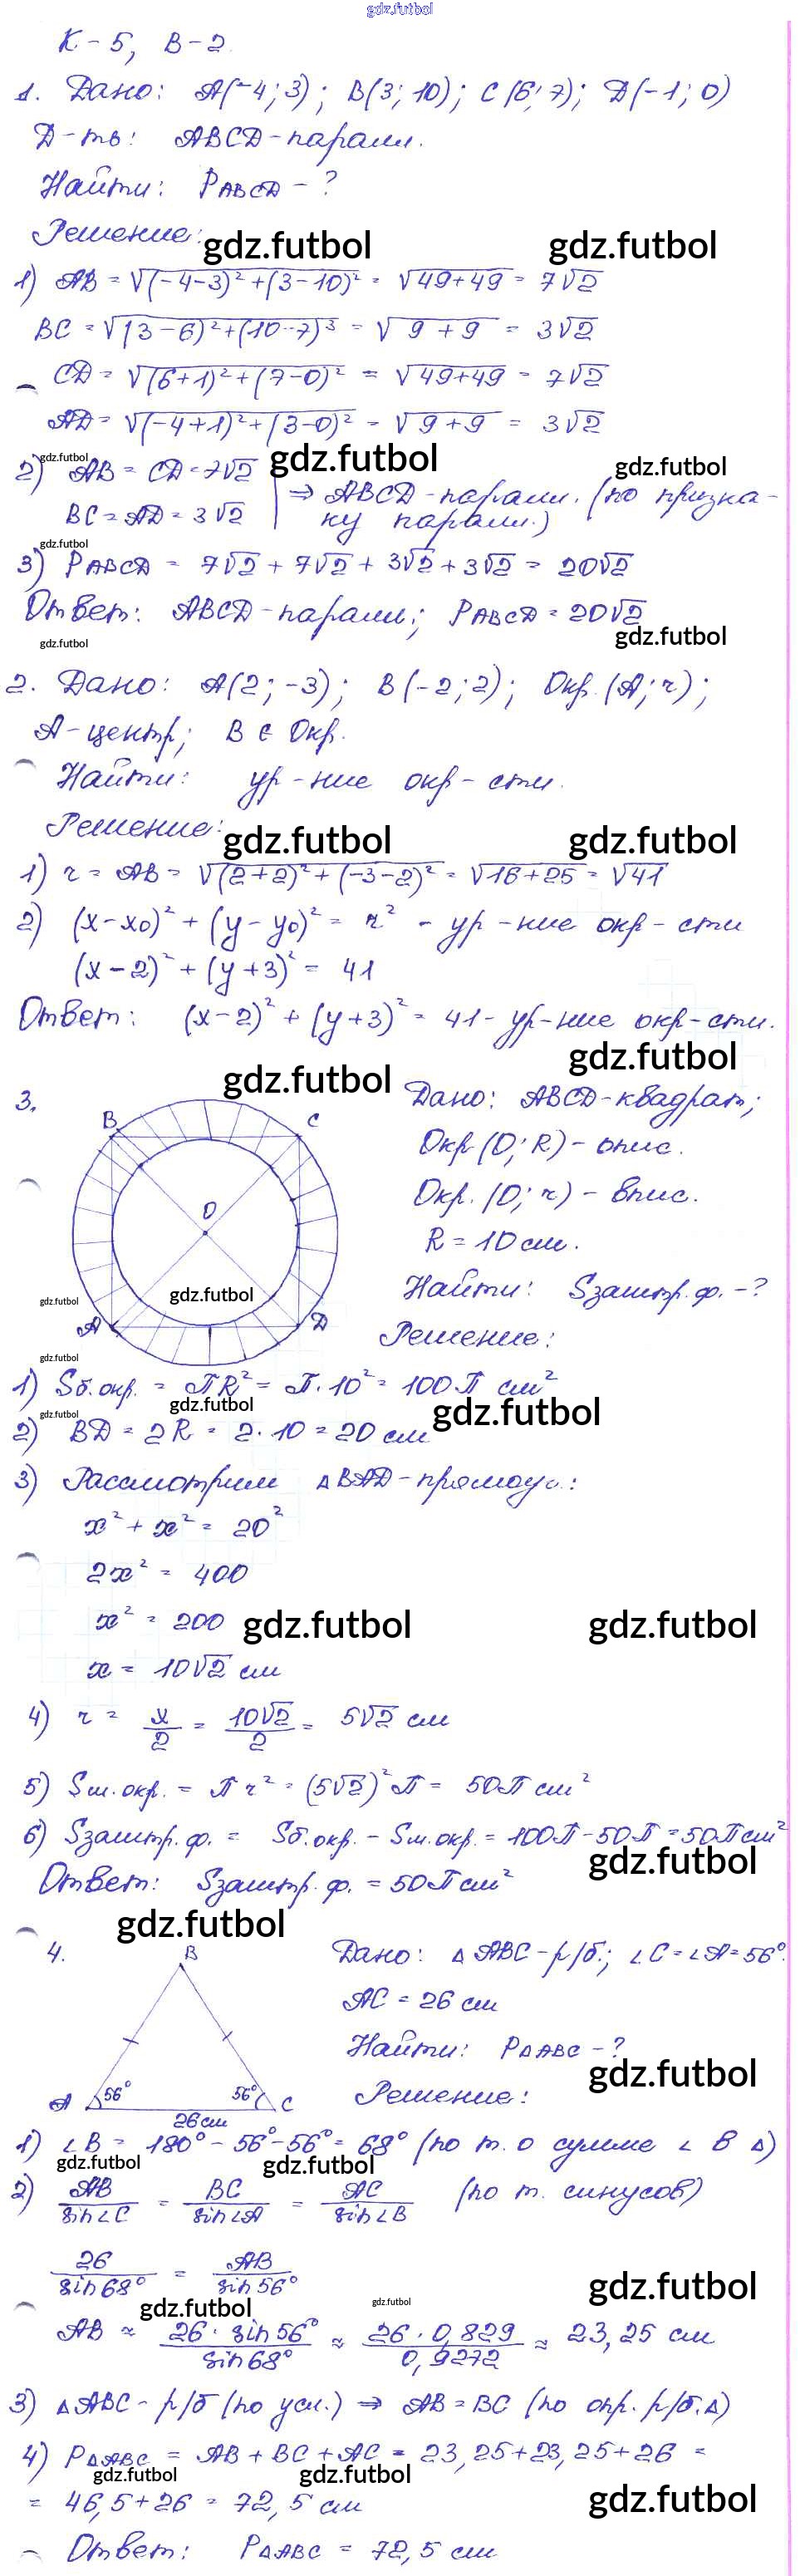 gdz.futbol
К-5, В-2.
1. Дано: A(-4; 3); B(3; 10); C(6; 7); D(-1; 0)
Д-ть: ABCD-паралл.
Найти: PABCD - ?
Решение:
gdz.futbol gdz.futbol
1) AB = √(-4-3)² + (3-10)² = √49+49 = 7√2
BC = √(3-6)² + (10-7)³ = √9+9 = 3√2
CD = √(6+1)² + (7-0)² = √49+49 = 7√2
AD = √(-4+1)² + (3-0)² = √9+9 = 3√2
gdz.futbol gdz.futbol gdz.futbol
2) AB = CD = 7√2
BC = AD = 3√2 | ⇒ ABCD-паралл. (по призна-
ку паралл.)
gdz.futbol
3) PABCD = 7√2 + 7√2 + 3√2 + 3√2 = 20√2
Ответ: ABCD-паралл.; PABCD = 20√2
gdz.futbol gdz.futbol
2. Дано: A(2; -3); B(-2; 2); Окр.(A; r);
A-центр; B ∈ Окр.
Найти: ур-ние окр-сти.
Решение:
gdz.futbol gdz.futbol
1) r = AB = √(2+2)² + (-3-2)² = √16+25 = √41
2) (x-x0)² + (y-y0)² = r² - ур-ние окр-сти
(x-2)² + (y+3)² = 41
Ответ: (x-2)² + (y+3)² = 41 - ур-ние окр-сти.
gdz.futbol gdz.futbol
3. Дано: ABCD-квадрат;
B C
Окр.(O; R) - опис.
Окр.(O; r) - впис.
O
R = 10 см.
Найти: Sзаштр.ф. - ?
gdz.futbol gdz.futbol
A D
Решение:
gdz.futbol
1) Sб.окр. = πR² = π·10² = 100π см²
gdz.futbol gdz.futbol gdz.futbol
2) BD = 2R = 2·10 = 20 см
3) Рассмотрим △BAD-прямоуг.:
x² + x² = 20²
2x² = 400
x² = 200
gdz.futbol gdz.futbol
x = 10√2 см
4) r = x/2 = 10√2/2 = 5√2 см
5) Sм.окр. = πr² = (5√2)²π = 50π см²
6) Sзаштр.ф. = Sб.окр. - Sм.окр. = 100π - 50π = 50π см²
gdz.futbol
Ответ: Sзаштр.ф. = 50π см²
gdz.futbol
4. Дано: △ABC - р/б; ∠C = ∠A = 56°.
B
AC = 26 см
Найти: P△ABC - ?
gdz.futbol
A 56° 56° C
26 см
Решение:
1) ∠B = 180° - 56° - 56° = 68° (по т. о сумме ∠ в △)
gdz.futbol gdz.futbol
2) AB/sin∠C = BC/sin∠A = AC/sin∠B (по т. синусов)
26/sin68° = AB/sin56°
gdz.futbol gdz.futbol gdz.futbol
AB ≈ 26·sin56°/sin68° ≈ 26·0,829/0,9272 ≈ 23,25 см
3) △ABC - р/б (по усл.) ⇒ AB = BC (по опр. р/б.△)
4) P△ABC = AB + BC + AC = 23,25 + 23,25 + 26 =
gdz.futbol gdz.futbol
= 46,5 + 26 = 72,5 см
gdz.futbol
Ответ: P△ABC = 72,5 см